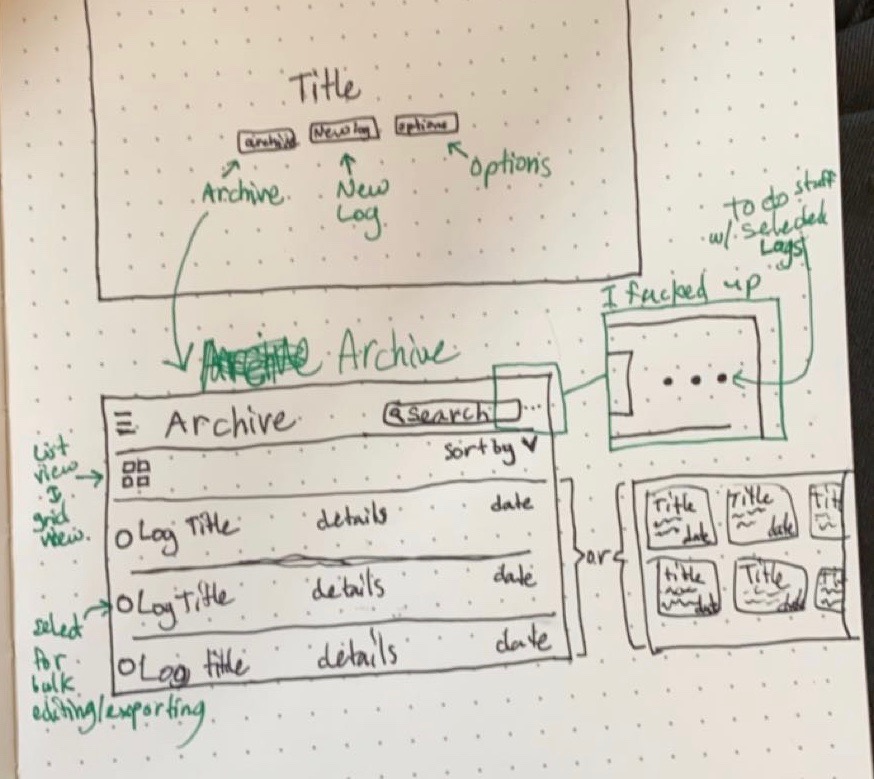 Title
archive New log options
Archive
New
Log
Options
to do stuff
w/ selected
Logs
I fucked up
Archive Archive
Archive
search
...
sort by
List
view
&
grid
view.
Log Title details date
Log Title details date
Log title details date
or
Title
date
Title
date
Tit
title
date
Title
date
Ti
select
for
bulk
editing/exporting